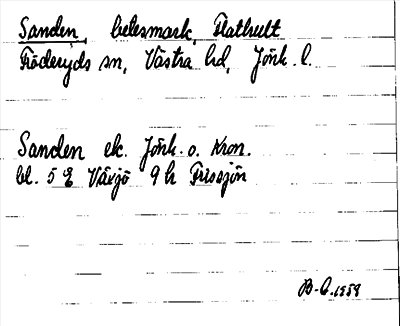 Sanden, betesmark, Flathult
Fröderyds sn, Västra hd, Jönk. l.
Sanden ek. Jönk. o. Kron.
bl. 5 E Växjö 9 h Frissjön
B-C. 1959